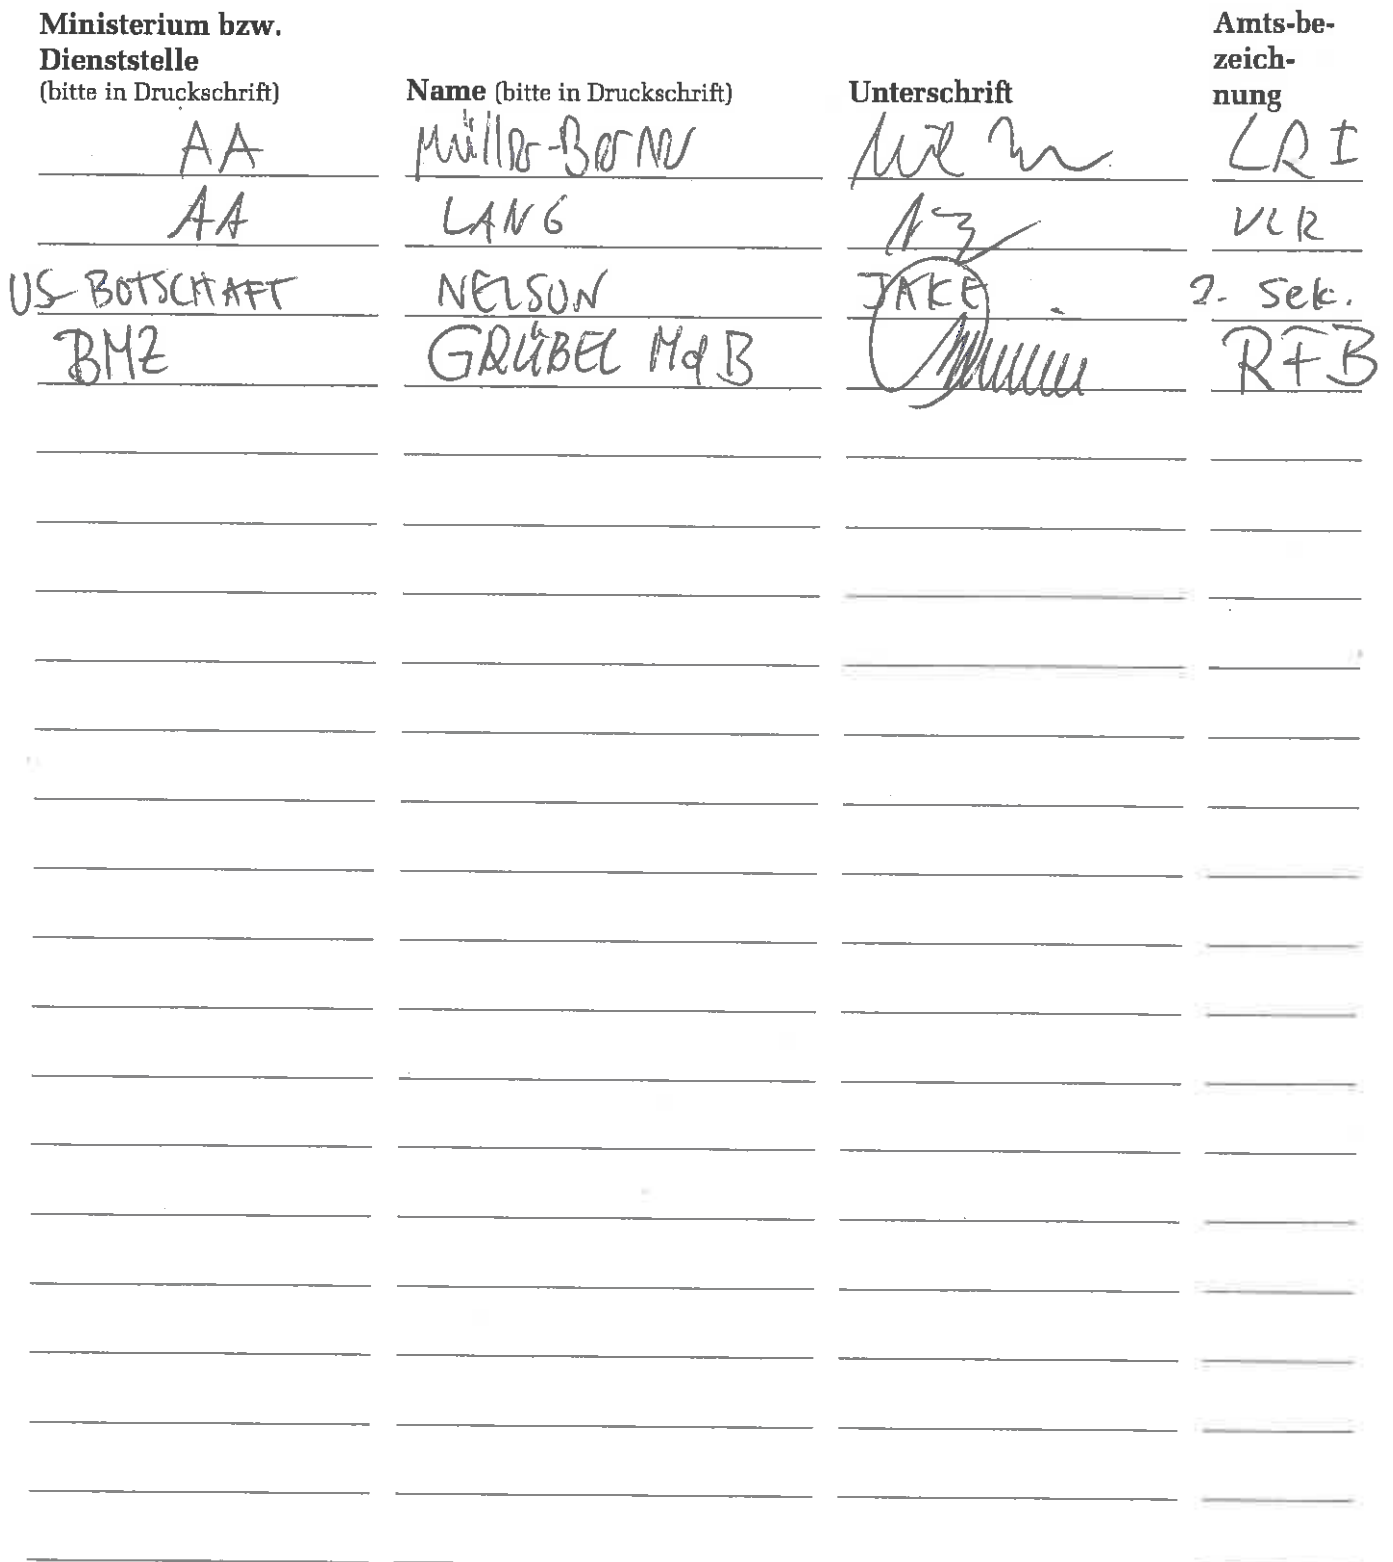 Ministerium bzw.
Dienststelle
(bitte in Druckschrift)
Name (bitte in Druckschrift)
Unterschrift
Amts-be-
zeich-
nung
AA Müller-Berner LR I
AA LANG VLR
US-BOTSCHAFT NELSON JAKE 2. Sek.
BMZ GRÜBEL MdB RFB